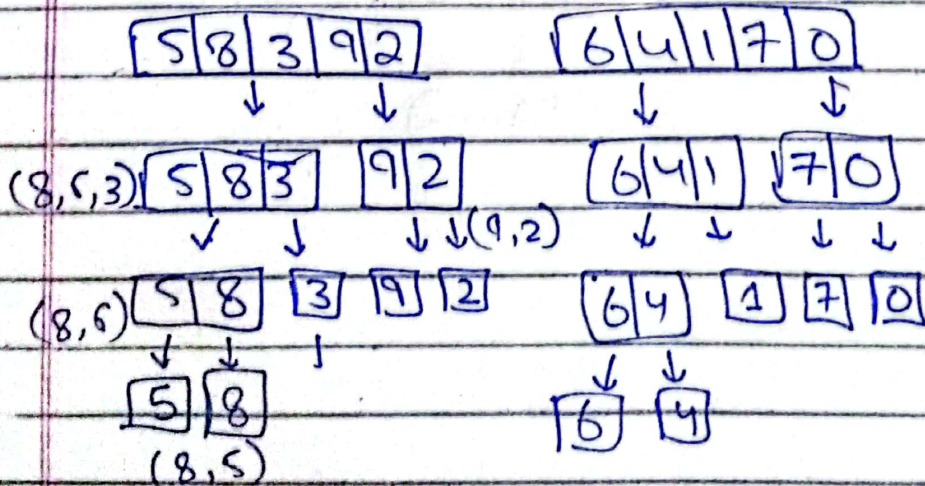 5 8 3 9 2 6 4 1 7 0
(8,5,3) 5 8 3 9 2 6 4 1 7 0
(9,2)
(8,5) 5 8 3 9 2 6 4 1 7 0
5 8 6 4
(8,5)